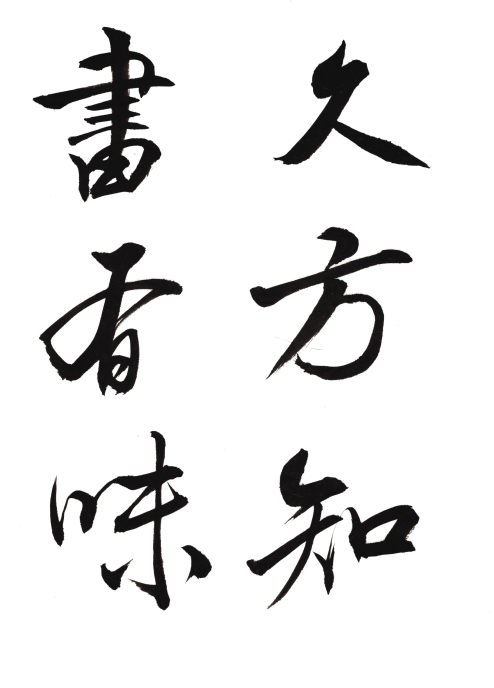 久方知
書有味